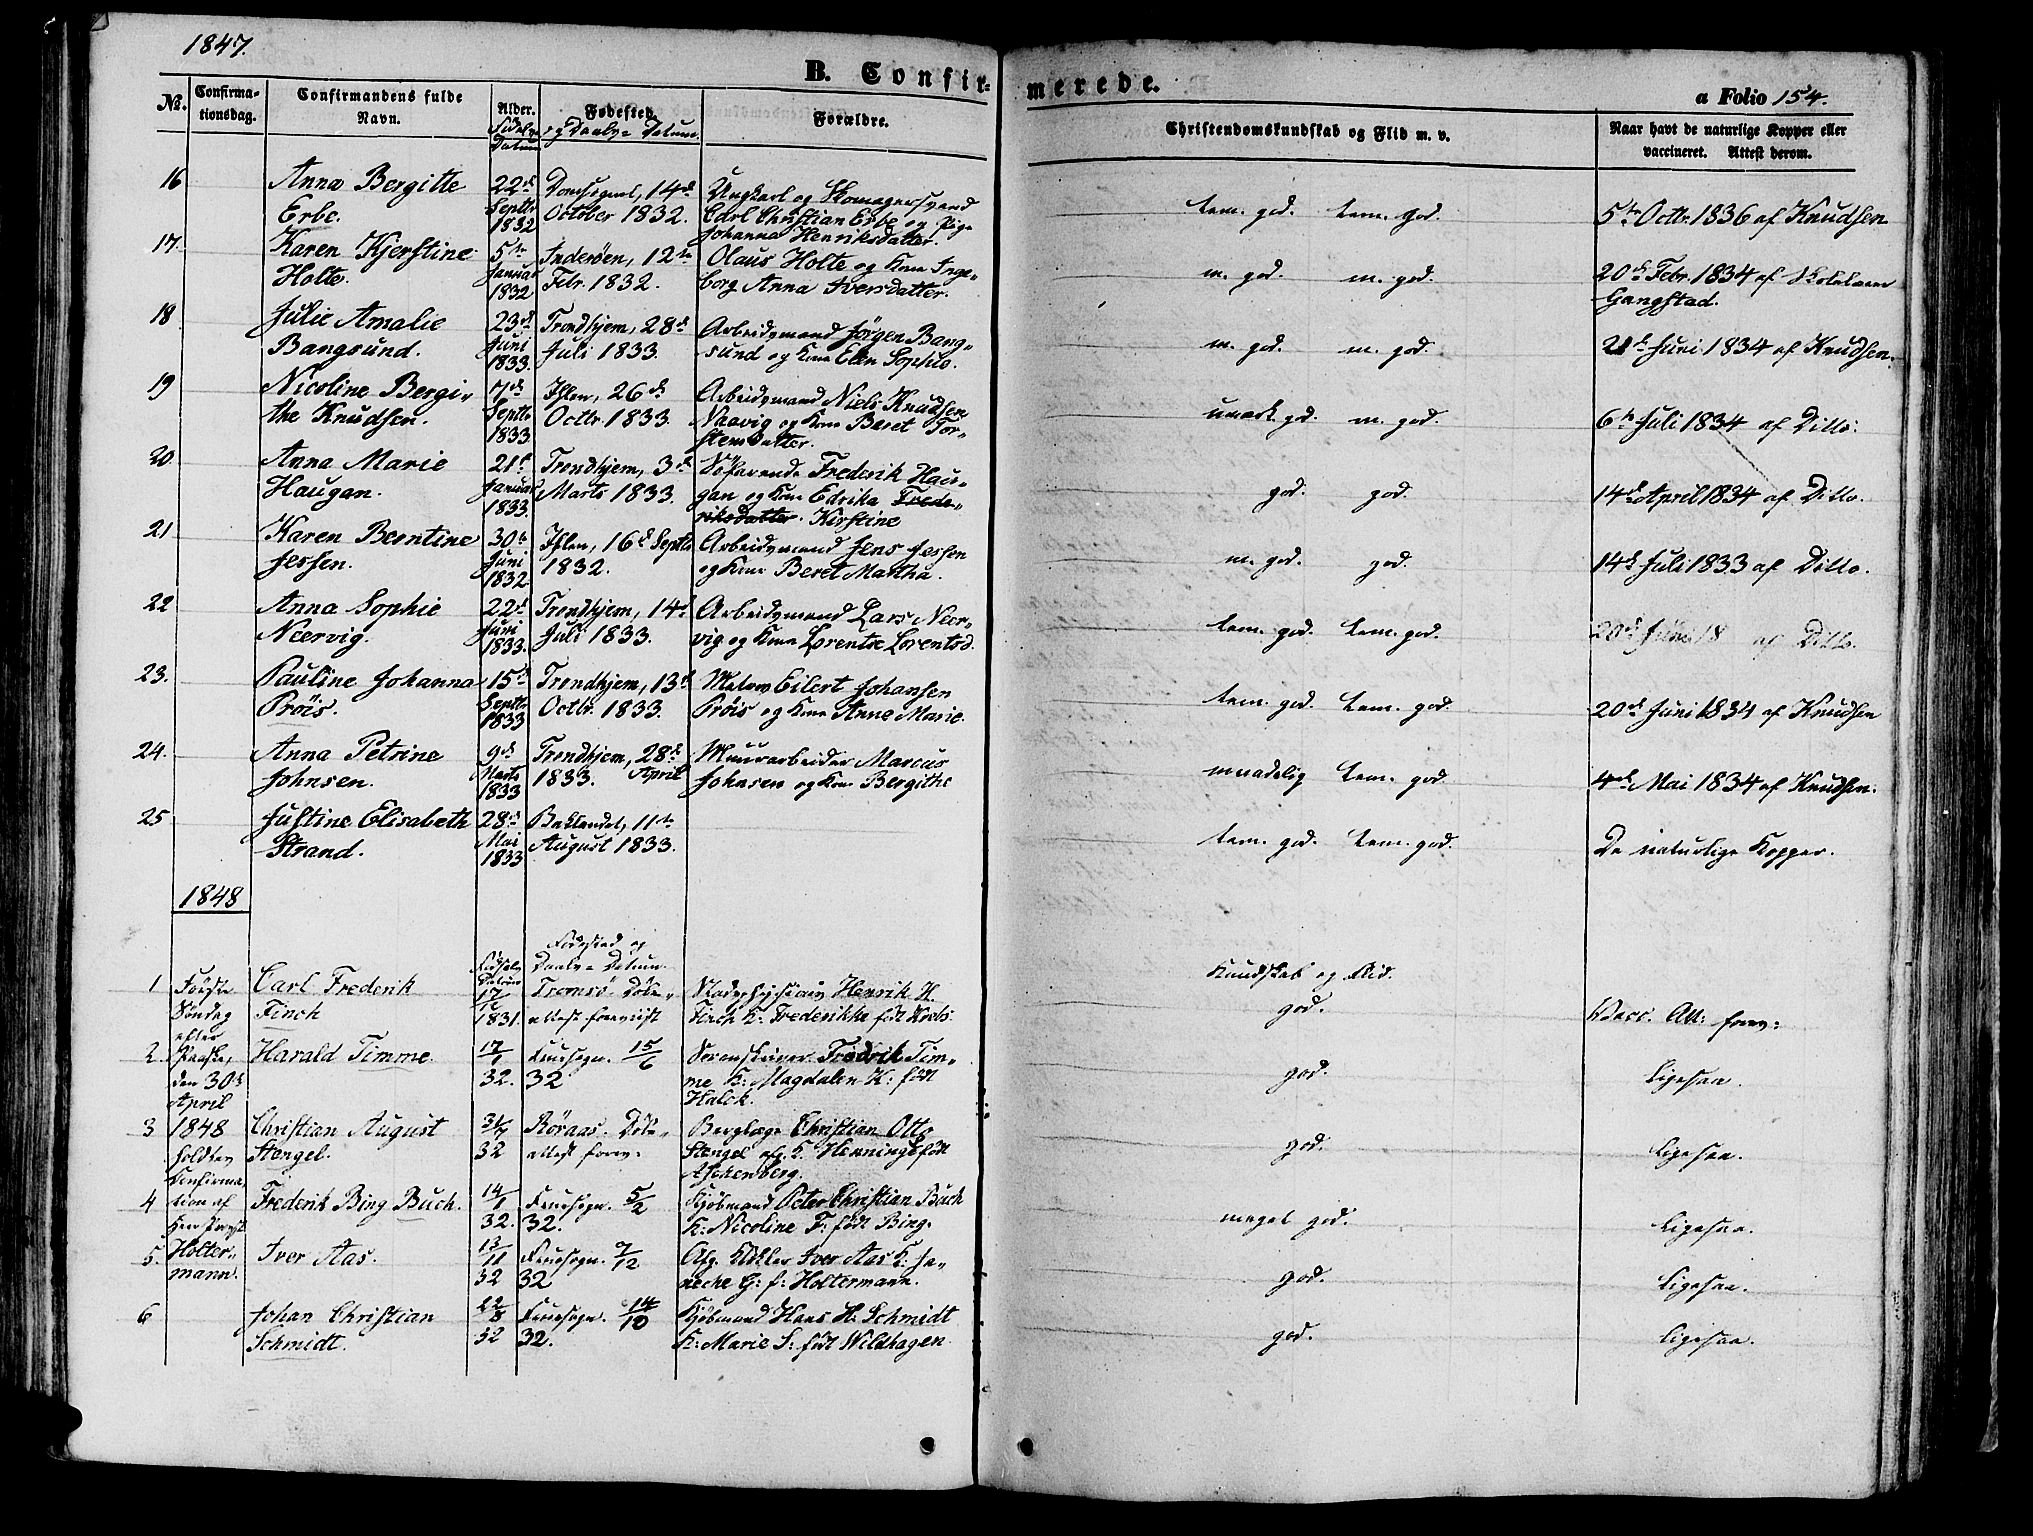 1847.
B. Confir=
merede.
a Folio 154.
No. Confirma-tionsdag. Confirmandens fulde Navn. Alder. Fødselsdatum Fødested og Daabs-Datum. Forældre. Christendomskundskab og Flid m. v. Naar havt de naturlige Kopper eller vaccineret. Attest derom.
16 Anna Bergitte 22de Domsognet, 14de Ungkarl og Skomagersvend
Erbe. Septbr October 1832. Carl Christian Erbe og Pige tem. god. tem. god. 5te Octbr. 1836 af Knudsen
1832 Johanna Henriksdatter.
17. Karen Kjerstine 5te Inderøen, 12te Olaus Holte og Kone Inge-
Holte. Januar Febr. 1832. borg Anna Iversdatter. m. god. m. god. 20de Febr. 1834 af Skolelærer
1832 Gangstad.
18 Julie Amalie 23de Trondhjem, 28de Arbeidsmand Jørgen Bang-
Bangsund. Juni Juli 1833. sund og Kone Elen Sophie. m. god. m. god. 21de Juni 1834 af Knudsen.
1833.
19 Nicoline Bergi- 7de Ihlen, 26de Arbeidsmand Niels Knudsen
the Knudsen. Septbr Octbr. 1833. og Kone Beret Tor- m. god. 6te Juli 1834 af Ditto.
1833. stensdatter.
20 Anna Marie 21de Trondhjem, 3de Søfarende Frederik Hau-
Haugan. Januar Marts 1833. gan og Kone Edrika Frede- god. god. 14de April 1834 af Ditto.
1833. riksdatter. Kirstine
21 Karen Berntine 30te Ihlen, 16de Septbr Arbeidsmand Jens Jessen
Jessen. Juni 1832. og Kone Beret Martha. m. god. god. 14de Juli 1833 af Ditto.
1832
22 Anna Sophie 22de Trondhjem, 14de Arbeidsmand Lars Neer-
Neervig. Juni Juli 1833. vig og Kone Lorentse Lorentsd. tem. god. tem. god. 20de Juni 18 af Ditto.
1833.
23. Pauline Johanna 15de Trondhjem, 13de Eilert Johansen
Prøis. Septbr Octbr. 1833. Prøis og Kone Anne Marie. tem. god. tem. god. 20de Juni 1834 af Knudsen
1833
24. Anna Petrine 9de Trondhjem, 28de Muurarbeider Marcus
Johnsen. Marts 1833. April Johnsen og Kone Bergithe maadelig tem. god. 4de Mai 1834 af Knudsen.
1833
25 Justine Elisabeth 28de Baklandet, 11te
Strand. Mai August 1833. tem. god. tem. god. De naturlige Kopper.
1833
1848
Fødested og
Fødsels Datum Daabs-Datum. Kundskab og Flid.
1 Første Carl Frederik 17 Tromsø. Døbe-
Søndag Finch 1831. attest foreviist Stadsphysicus Henrik H. Finch K: Frederikke født Krebs god. Vacc. Att: forev:
efter
2. Paaske, Harald Timme. 17/1 Fruesogn. 15/6 Frederik Tim-
den 30te 32. 32 me K: Magdalen K: født god. Ligesaa.
April Halck.
3 1848 Christian August 31/7 Røraas. Døbe- Berglæge Christian Otto
holdtes Stengel. 32 attest forev: Stengel og K. Henninge født god. Ligesaa.
Confirma- Aschenberg.
4 tion af Frederik Bing Buch. 14/1 Fruesogn. 5/2 Kjøbmand Peter Christian Buch
32. 32. K: Nicoline F: født Bing. meget god. Ligesaa.
5. Holter- Iver Aas. 13/11 Fruesogn. 7/12 Afg. Iver Aas K: Ja-
mann. 32 32 neche G: f: Holtermann. god. Ligesaa.
6 Johan Christian 22/8 Fruesogn. 14/10 Kjøbmand Hans H. Schmidt
Schmidt. 32 32. K: Marie S: født Wildhagen god. Ligesaa.